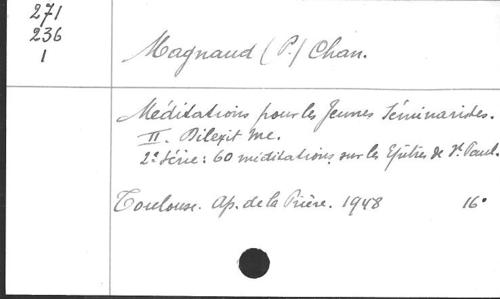 271
236
1
Magnaud (P.) Chan.
Méditations pour les Jeunes Séminaristes.
II. Dilexit me.
2e série : 60 méditations sur les Epitres de St. Paul.
Toulouse. Ap. de la Prière. 1948 16°